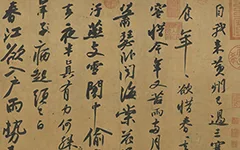 自我來黃州已過三寒
食年〻欲惜春
容惜今年又苦雨兩月
蕭瑟卧聞海棠花
汙燕支雪闇中偷
去夜半真有力何殊
少年病起頭已白
春江欲入戶雨勢